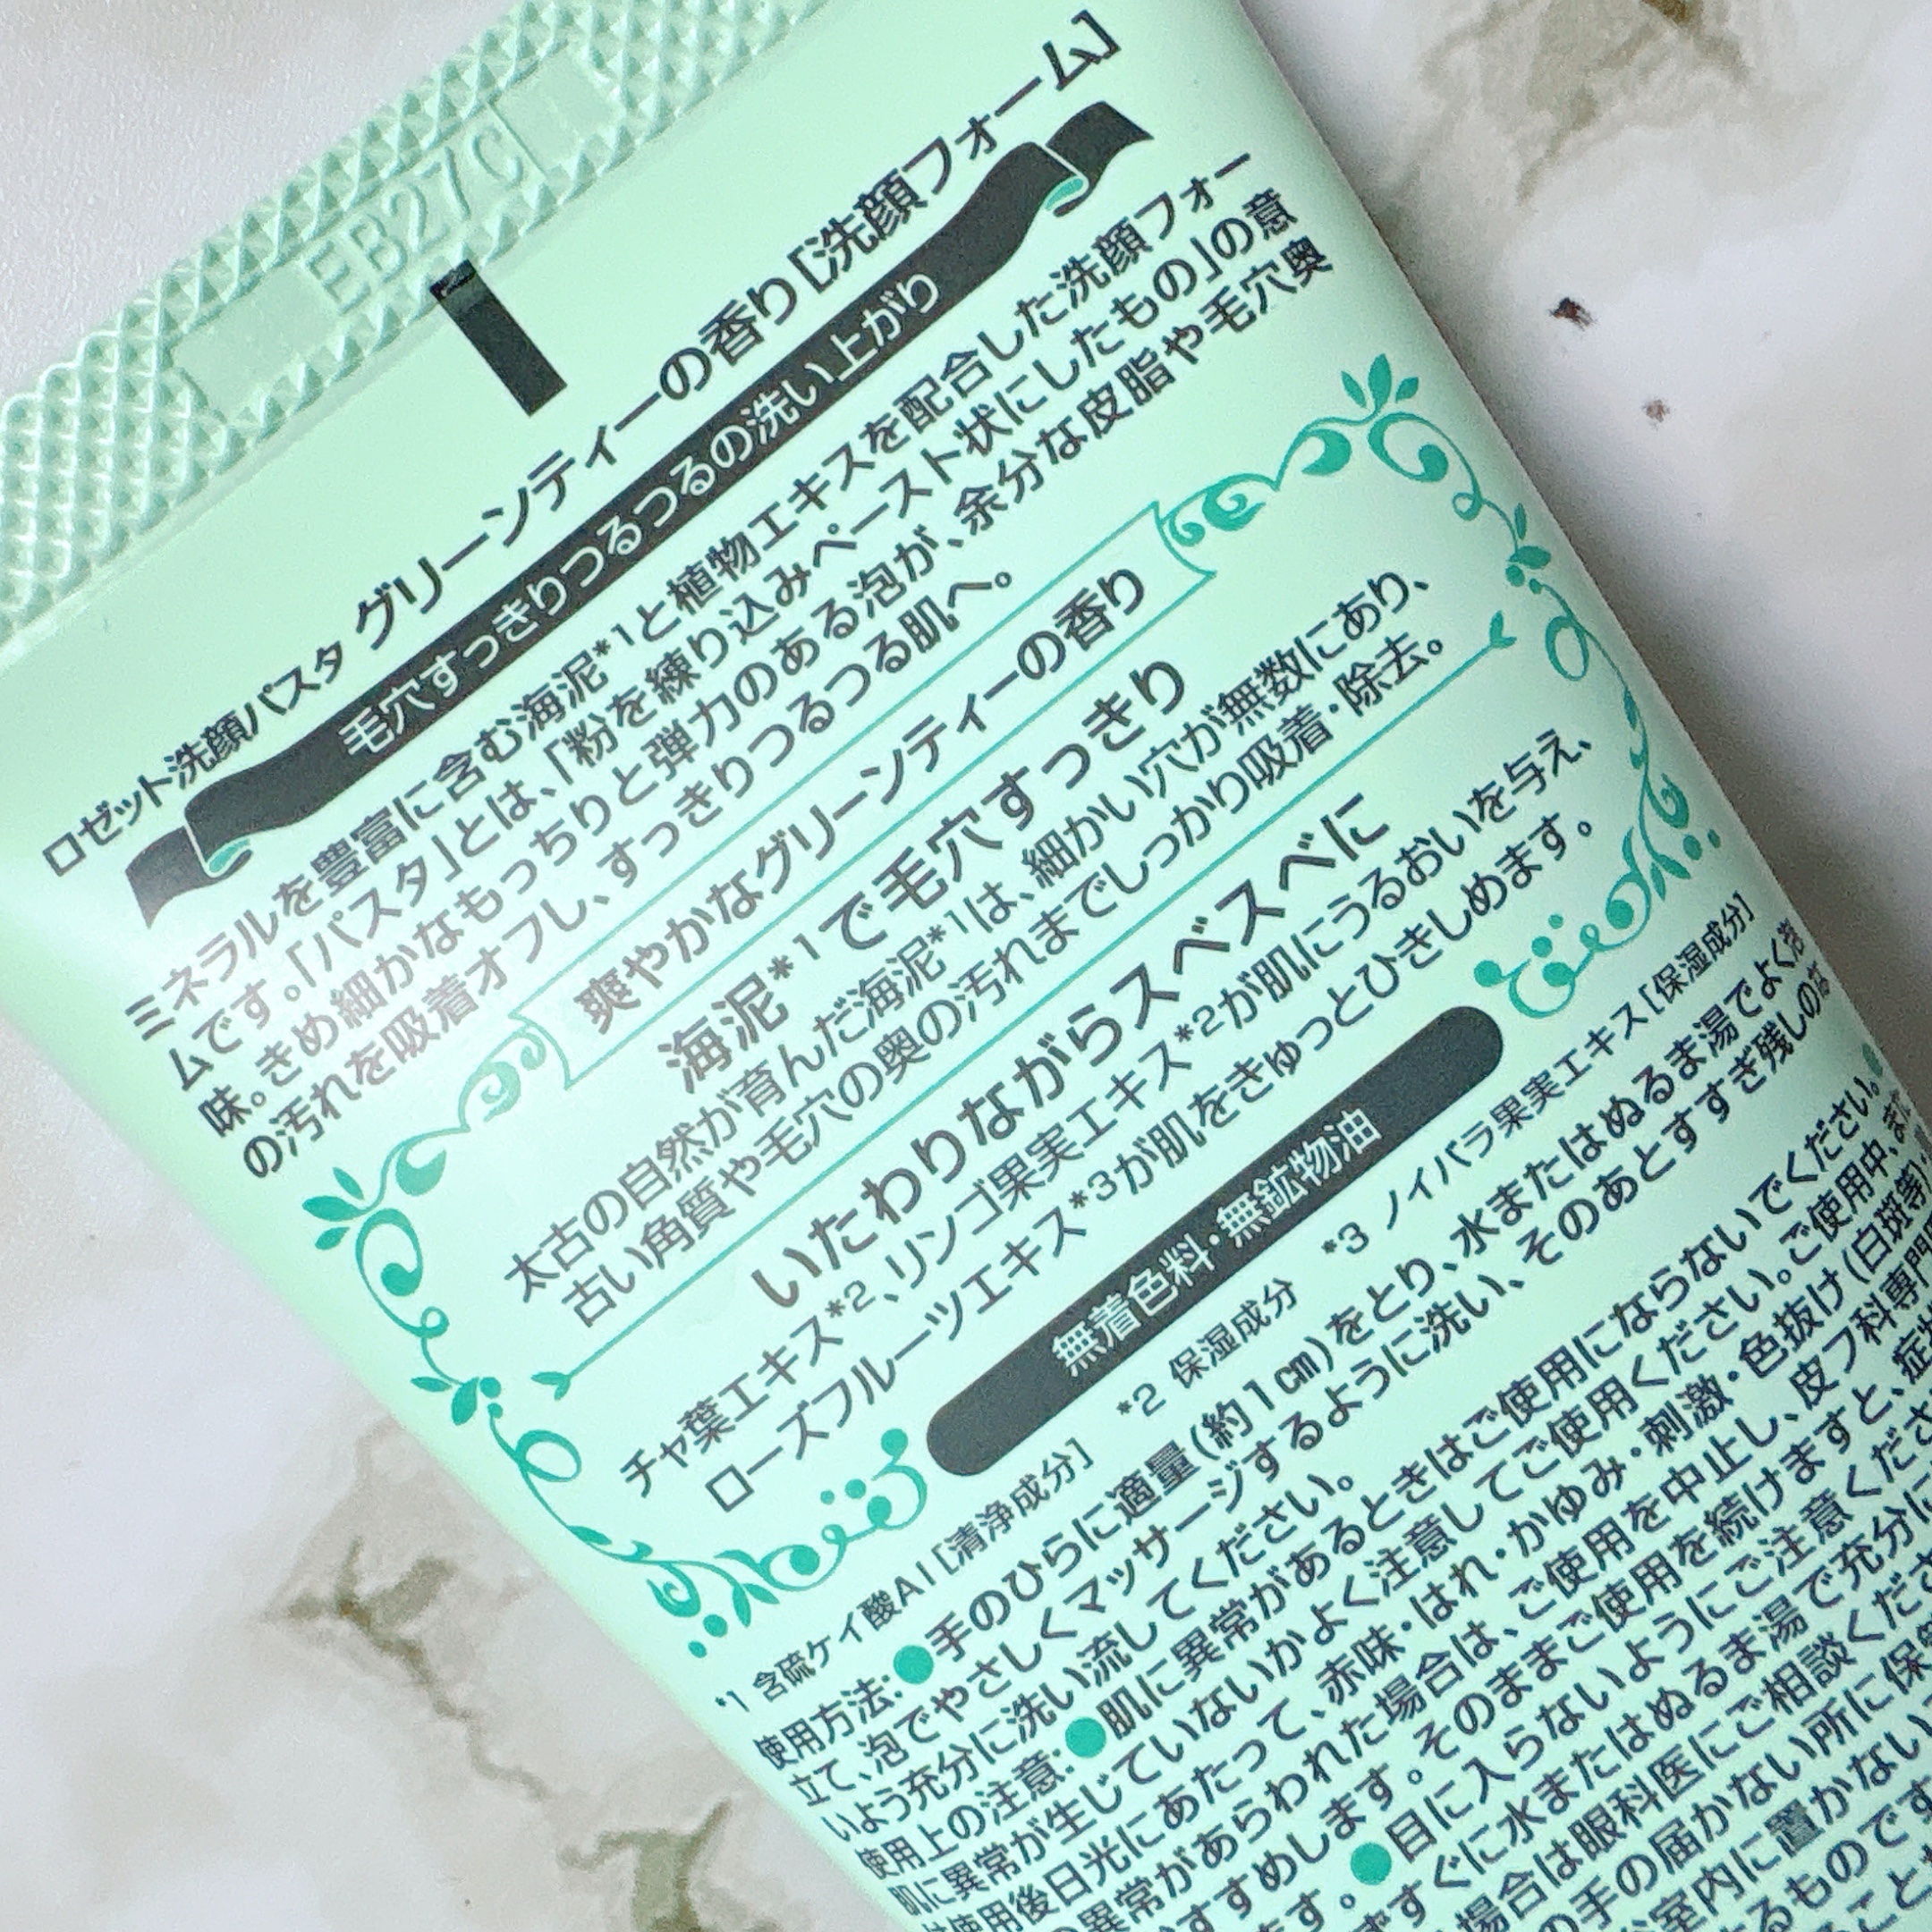 EB27C
ロゼット洗顔パスタ グリーンティーの香り［洗顔フォーム］
毛穴すっきりつるつるの洗い上がり
ミネラルを豊富に含む海泥*1と植物エキスを配合した洗顔フォー
ムです。「パスタ」とは、「粉を練り込みペースト状にしたもの」の意
味。きめ細かなもっちりと弾力のある泡が、余分な皮脂や毛穴奥
の汚れを吸着オフし、すっきりつるつる肌へ。
爽やかなグリーンティーの香り
海泥*1で毛穴すっきり
太古の自然が育んだ海泥*1は、細かい穴が無数にあり、
古い角質や毛穴の奥の汚れまでしっかり吸着・除去。
いたわりながらスベスベに
チャ葉エキス*2、リンゴ果実エキス*2が肌にうるおいを与え、
ローズフルーツエキス*3が肌をきゅっとひきしめます。
無着色料・無鉱物油
*1 含硫ケイ酸Al［清浄成分］ *2 保湿成分 *3 ノイバラ果実エキス［保湿成分］
使用方法:●手のひらに適量(約1㎝)をとり、水またはぬるま湯でよく泡
立て、泡でやさしくマッサージするように洗い、そのあとすすぎ残しのな
いよう充分に洗い流してください。
使用上の注意:●肌に異常があるときはご使用にならないでください。●
肌に異常が生じていないかよく注意してご使用ください。ご使用中、また
は使用後日光にあたって、赤味・はれ・かゆみ・刺激・色抜け(白斑等)
の異常があらわれた場合は、ご使用を中止し、皮フ科専門
すすめします。そのままご使用を続けますと、症状
ます。●目に入らないようにご注意くださ
すぐに水またはぬるま湯で充分に
場合は眼科医にご相談くださ
の手の届かない所に保管
室内に置かない
るものです
こと